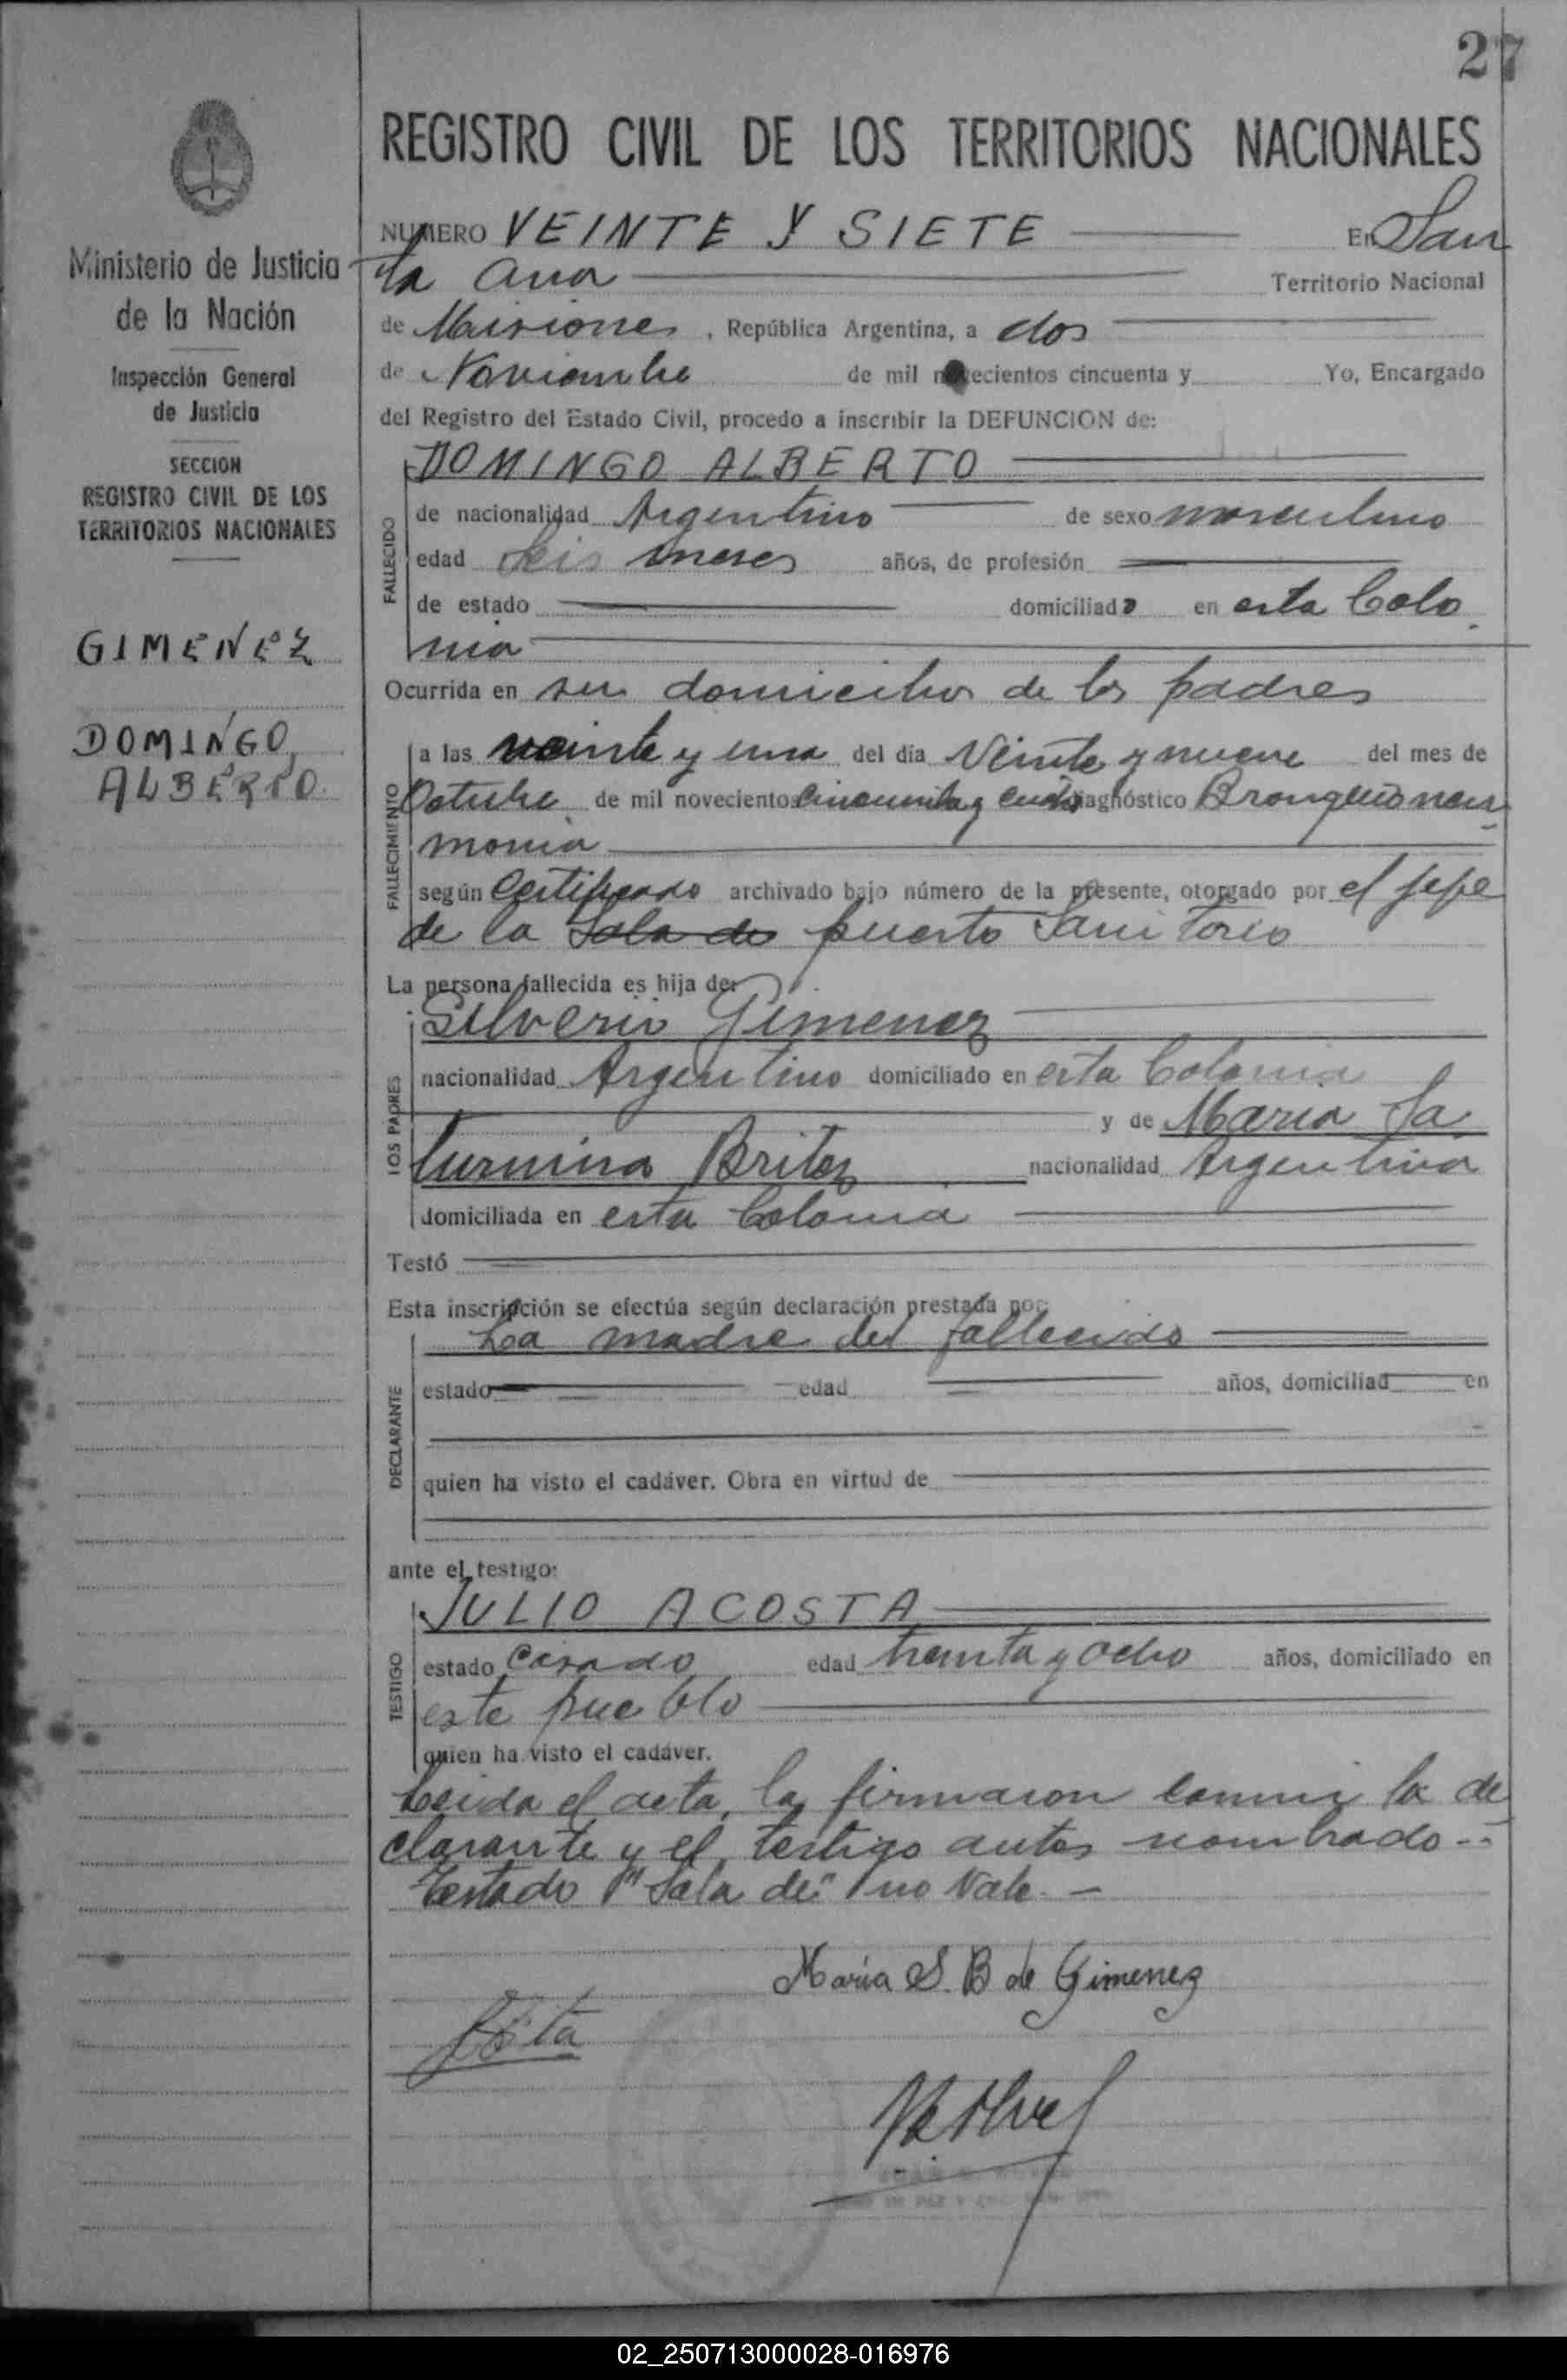 27
REGISTRO CIVIL DE LOS TERRITORIOS NACIONALES
NUMERO VEINTE Y SIETE En San
ta Ana Territorio Nacional
de Misiones, República Argentina, a dos
de Noviembre de mil novecientos cincuenta y Yo, Encargado
del Registro del Estado Civil, procedo a inscribir la DEFUNCION de:
DOMINGO ALBERTO
FALLECIDO
de nacionalidad Argentino de sexo masculino
edad seis meses años, de profesión
de estado domiciliado en esta Colo
nia
Ocurrida en su domicilio de los padres
FALLECIMIENTO
a las veinte y una del día Veinte y nueve del mes de
Octubre de mil novecientos cincuenta y diagnóstico Bronquioneu
monia
según Certificado archivado bajo número de la presente, otorgado por el jefe
de la Sala de puesto Sanitario
La persona fallecida es hija de:
Silverio Gimenez
LOS PADRES
nacionalidad Argentino domiciliado en esta Colonia
y de Maria Sa
turnina Britez nacionalidad Argentina
domiciliada en esta Colonia
Testó
Esta inscripción se efectúa según declaración prestada por:
La madre del fallecido
DECLARANTE
estado edad años, domiciliad en
quien ha visto el cadáver. Obra en virtud de
ante el testigo:
JULIO ACOSTA
TESTIGO
estado Casado edad treinta y ocho años, domiciliado en
este pueblo
quien ha visto el cadáver.
Leida el acta, la firmaron conmi la de
clarante y el testigo antes nombrado.-
Testado "Sala de" no Vale.-
Maria S. B de Gimenez
Ministerio de Justicia
de la Nación
Inspección General
de Justicia
SECCION
REGISTRO CIVIL DE LOS
TERRITORIOS NACIONALES
GIMENEZ
DOMINGO
ALBERTO
02_250713000028-016976